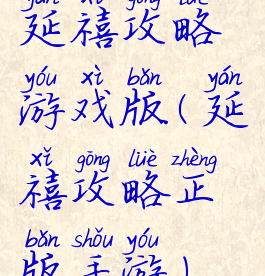 yán xǐ gōng lüè
延禧攻略
yóu xì bǎn yán
游戏版(延
xǐ gōng lüè zhèng
禧攻略正
bǎn shǒu yóu
版手游)